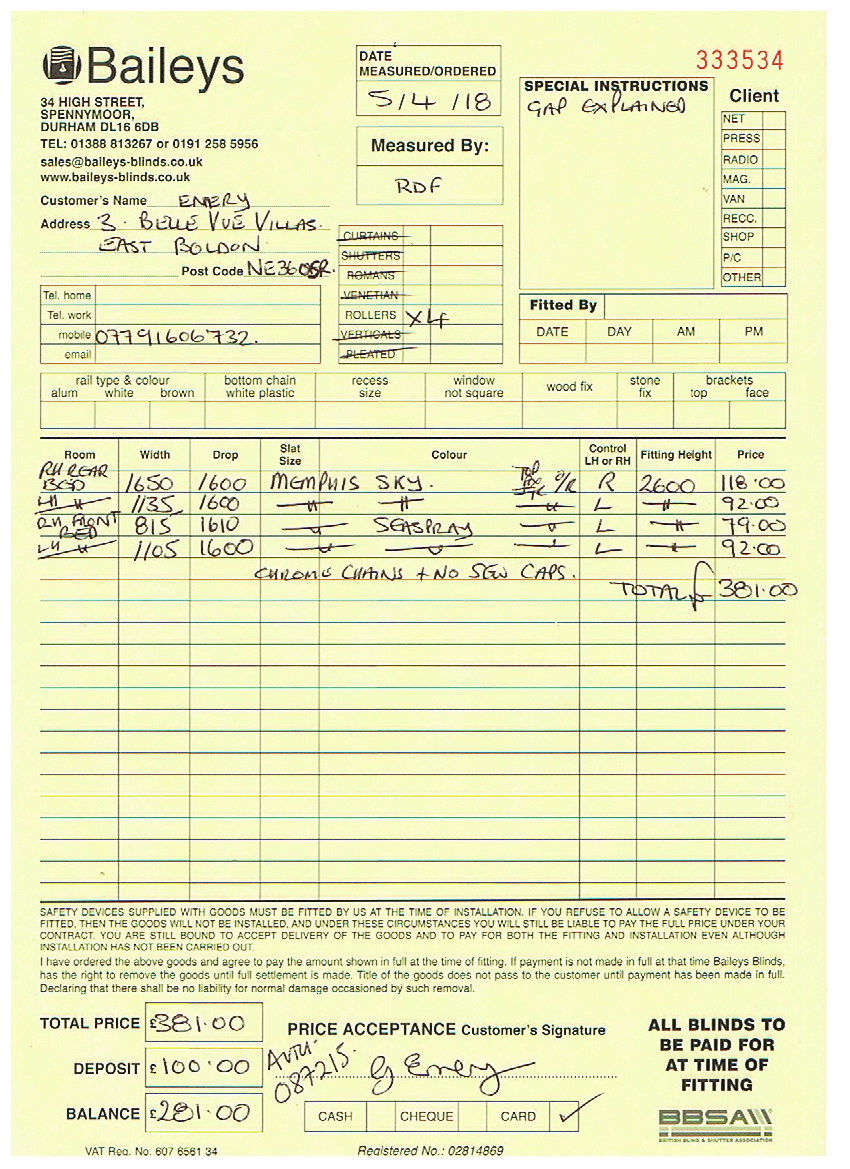 Baileys
34 HIGH STREET,
SPENNYMOOR,
DURHAM DL16 6DB
TEL: 01388 813267 or 0191 258 5956
sales@baileys-blinds.co.uk
www.baileys-blinds.co.uk
DATE
MEASURED/ORDERED
5/4/18
Measured By:
RDF
333534
SPECIAL INSTRUCTIONS
GAP EXPLAINED
Client
NET
PRESS
RADIO
MAG.
VAN
RECC.
SHOP
P/C
OTHER
Customer's Name EMERY
Address 3. BELLE VUE VILLAS.
EAST BOLDON
Post Code NE36 0SR.
Tel. home
Tel. work
mobile 07791606732.
email
CURTAINS
SHUTTERS
ROMANS
VENETIAN
ROLLERS X4
VERTICALS
PLEATED
Fitted By
DATE DAY AM PM
rail type & colour
alum white brown
bottom chain
white plastic
recess
size
window
not square
wood fix
stone
fix
brackets
top face
Room Width Drop Slat Size Colour Control LH or RH Fitting Height Price
RH REAR BED 1650 1600 MEMPHIS SKY. O/R R 2600 118.00
LH " 1135 1600 " " " L " 92.00
RH FRONT BED 815 1610 " SEASPRAY " L " 79.00
LH " 1105 1600 " " " L " 92.00
CHROME CHAINS + NO SEW CAPS.
TOTAL £ 381.00
SAFETY DEVICES SUPPLIED WITH GOODS MUST BE FITTED BY US AT THE TIME OF INSTALLATION. IF YOU REFUSE TO ALLOW A SAFETY DEVICE TO BE
FITTED, THEN THE GOODS WILL NOT BE INSTALLED, AND UNDER THESE CIRCUMSTANCES YOU WILL STILL BE LIABLE TO PAY THE FULL PRICE UNDER YOUR
CONTRACT. YOU ARE STILL BOUND TO ACCEPT DELIVERY OF THE GOODS AND TO PAY FOR BOTH THE FITTING AND INSTALLATION EVEN ALTHOUGH
INSTALLATION HAS NOT BEEN CARRIED OUT.
I have ordered the above goods and agree to pay the amount shown in full at the time of fitting. If payment is not made in full at that time Baileys Blinds,
has the right to remove the goods until full settlement is made. Title of the goods does not pass to the customer until payment has been made in full.
Declaring that there shall be no liability for normal damage occasioned by such removal.
TOTAL PRICE £381.00
DEPOSIT £100.00
BALANCE £281.00
PRICE ACCEPTANCE Customer's Signature
AUTH-
087215.
G Emery
CASH CHEQUE CARD ✓
ALL BLINDS TO
BE PAID FOR
AT TIME OF
FITTING
BBSA
BRITISH BLIND & SHUTTER ASSOCIATION
VAT Reg. No. 607 6561 34
Registered No.: 02814869